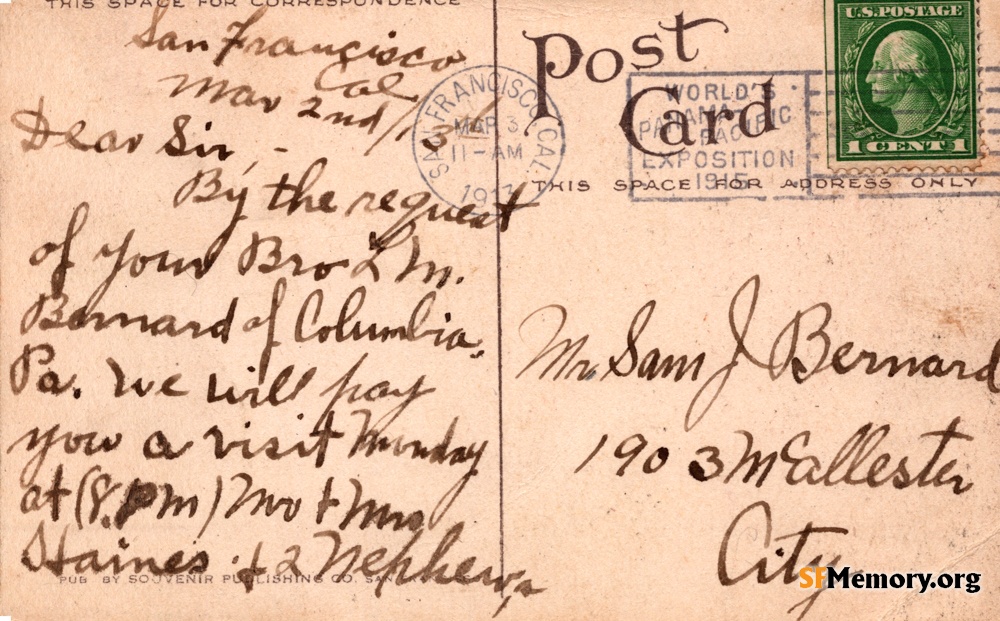 THIS SPACE FOR CORRESPONDENCE
San Francisco
Cal
Mar 2nd/13
Dear Sir, -
By the request
of your Bro L M.
Bernard of Columbia.
Pa. We will pay
you a visit Monday
at (8. PM) Mr & Mrs
Haines & 2 Nephews
PUB BY SOUVENIR PUBLISHING CO. SAN
Post
Card
THIS SPACE FOR ADDRESS ONLY
U.S. POSTAGE
1 CENT 1
SAN FRANCISCO, CAL.
MAR 3
11-AM
191
WORLD'S
PANAMA
PACIFIC
EXPOSITION
1915
Mr Sam J Bernard
1903 McAllester
City
SFMemory.org